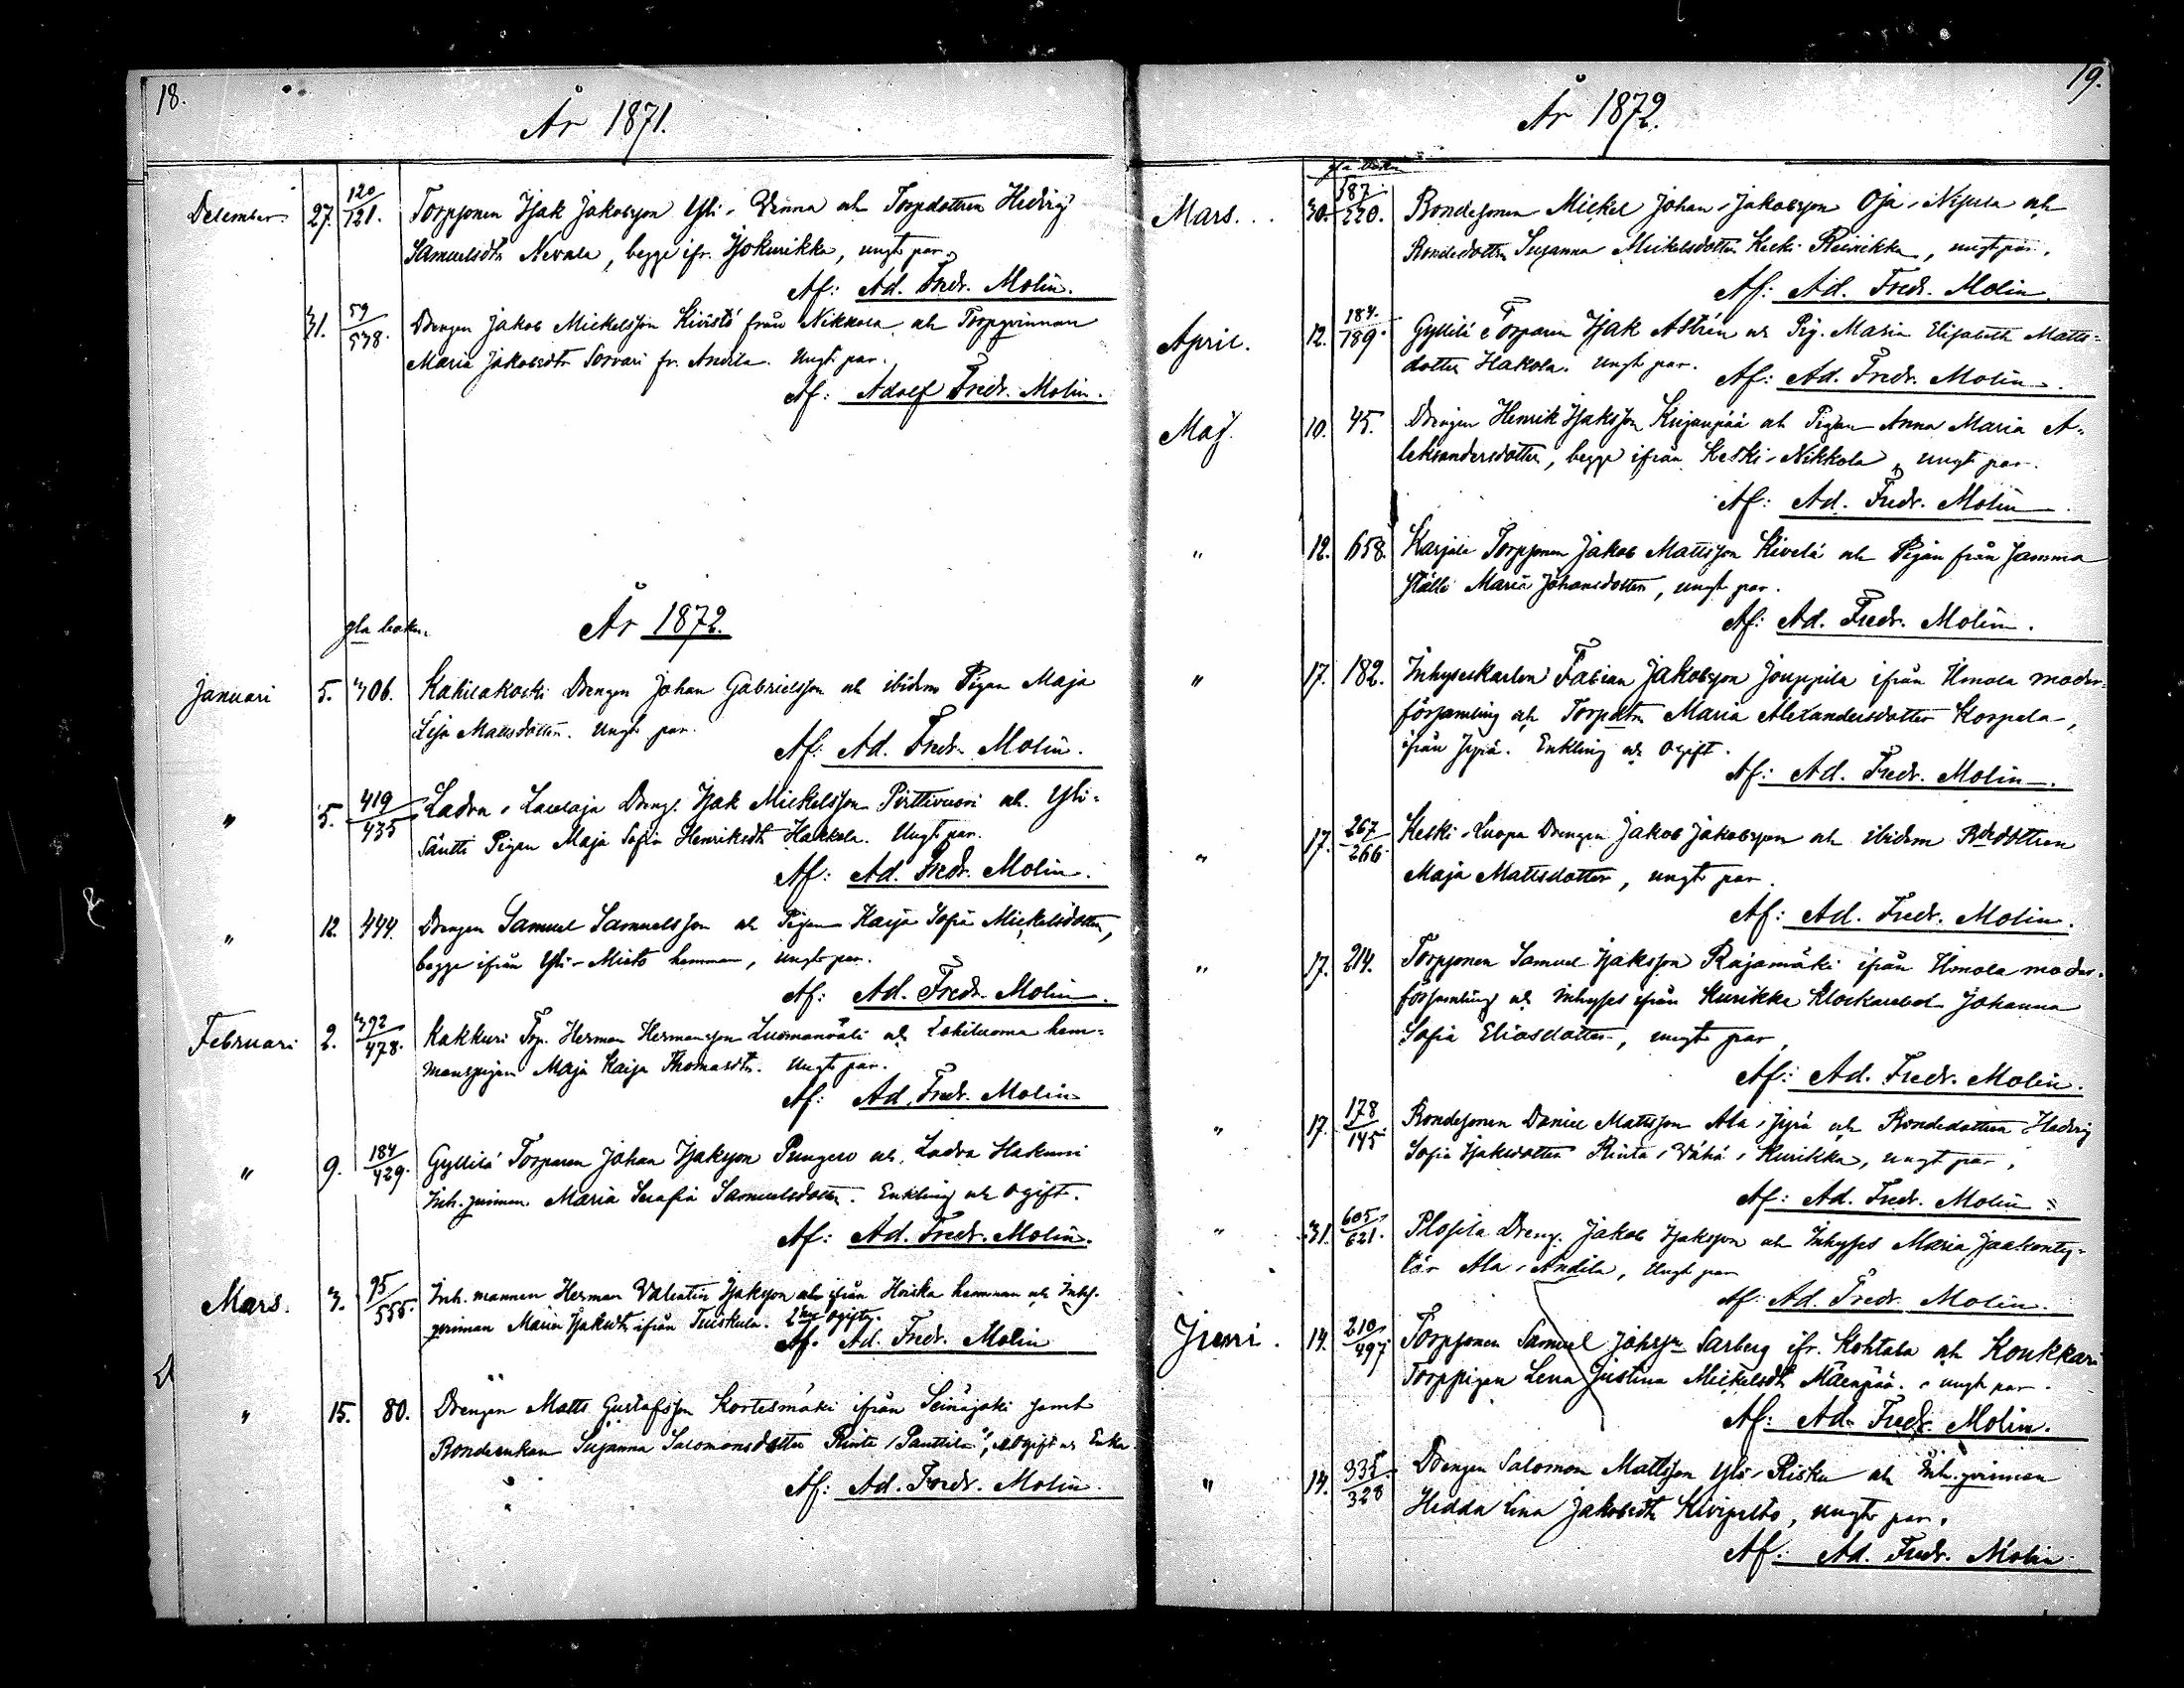 18.
År 1871.
December. 27. 120/121. Torpsonen Isak Jakobsson Yli-Venna och Torpdottren Hedvig
Samuelsdtr Nevala, begge ifr. Iljokurikka, ungt par.
Af: Ad. Fredr. Molin.
31. 59/578. Drengen Jakob Mickelsson Kivistö från Nikkola och Torpqvinnan
Maria Jakobsdtr Sorvari fr. Andila. Ungt par.
Af: Adolf Fredr. Molin.
gla boken. År 1872.
Januari 5. 306. Kahilakoski Drengen Johan Gabrielsson och ibidem Pigan Maja
Lisa Mattsdotter. Ungt par.
Af: Ad. Fredr. Molin.
" 5. 419/435 Ladva-Laulaja Dreng. Isak Mickelsson Pirttivuori och Yli-
Säntti Pigan Maja Sofia Henriksdtr Hakkola. Ungt par.
Af: Ad. Fredr. Molin.
" 12. 444. Drengen Samuel Samuelsson och Pigan Kaisa Sofia Mickelsdotter,
begge ifrån Yli-Mieto hemman, ungt par.
Af: Ad. Fredr. Molin.
Februari 2. 392/478. Kakkuri Trp. Herman Hermansson Luomanväli och Lohiluoma hem-
manspigan Maja Kaisa Thomasdtr. Ungt par.
Af: Ad. Fredr. Molin
" 9. 184/429. Gyllilä Torparen Johan Isaksson Pungero och Ladva Hakuni
Inh. qvinnan Maria Serafia Samuelsdotter. Enkling och ogift.
Af: Ad. Fredr. Molin.
Mars. 3. 95/555. Inh. mannen Herman Valentin Isaksson ifrån Hoiska hemman och Inhys.
qvinnan Maria Isaksdtr ifrån Tuiskula. 2ne ogifte.
Af. Ad. Fredr. Molin
" 15. 80. Drengen Matts Gustafsson Kortesmäki ifrån Seinäjoki samt
Bondeenkan Susanna Salomonsdotter Rinta-Panttila, ogift och Enka
Af: Ad. Fredr. Molin.
19.
År 1872.
gla boken
Mars. 30. 187/220. Bondesonen Mickel Johan Jakobsson Oja-Nisula och
Bondedottren Susanna Mickelsdotter Keski-Reinikka, ungt par.
Af: Ad. Fredr. Molin.
April. 12. 184./189. Gyllilä Torparen Isak Aström och Pig. Maria Elisabeth Matts-
dotter Hakola. Ungt par.
Af: Ad. Fredr. Molin.
Maj. 10. 45. Drengen Henrik Isaksson Kujanpää och Pigan Anna Maria A-
leksandersdotter, begge ifrån Keski-Nikkola, ungt par.
Af: Ad. Fredr. Molin.
" 12. 658. Karjala Torpsonen Jakob Mattsson Kivelä och Pigan från samma
ställe Maria Johansdotter, ungt par.
Af: Ad. Fredr. Molin.
" 17. 182. Inhyseskarlen Fabian Jakobsson Jouppila ifrån Ilmola moder-
församling och Torpdtrn Maria Alexandersdotter Korpela,
ifrån Jyrä. Enkling och ogift.
Af: Ad. Fredr. Molin.
" 17. 267/266. Keski-Luopa Drengen Jakob Jakobsson och ibidem Bdedottren
Maja Mattsdotter, ungt par.
Af: Ad. Fredr. Molin.
" 17. 214. Torpsonen Samuel Isaksson Rajamäki ifrån Ilmola moder-
församling och Inhyses ifrån Kurikka Klockarebol Johanna
Sofia Eliasdotter, ungt par,
Af: Ad. Fredr. Molin.
" 17. 178/145. Bondesonen Daniel Mattsson Ala-Jyrä och Bondedottren Hedvig
Sofia Isaksdotter Rinta-Vähä-Kurikka, ungt par.
Af: Ad. Fredr. Molin
" 31. 605/621. Plosila Dreng. Jakob Isaksson och Inhyses Maria Jaakonty-
tär Ala-Andila, Ungt par
Af: Ad. Fredr. Molin.
Juni. 14. 210/497. Torpsonen Samuel Johsson Sarberg ifr. Kohtala och Konkkari
Torppigan Lena Justina Mickelsdtr Mäenpää. ungt par.
Af: Ad. Fredr. Molin.
" 14. 335/328 Drengen Salomon Mattsson Yli-Risku och Inh. qvinnan
Hedda Lena Jakobsdtr Kivipelto, ungt par.
Af: Ad. Fredr. Molin